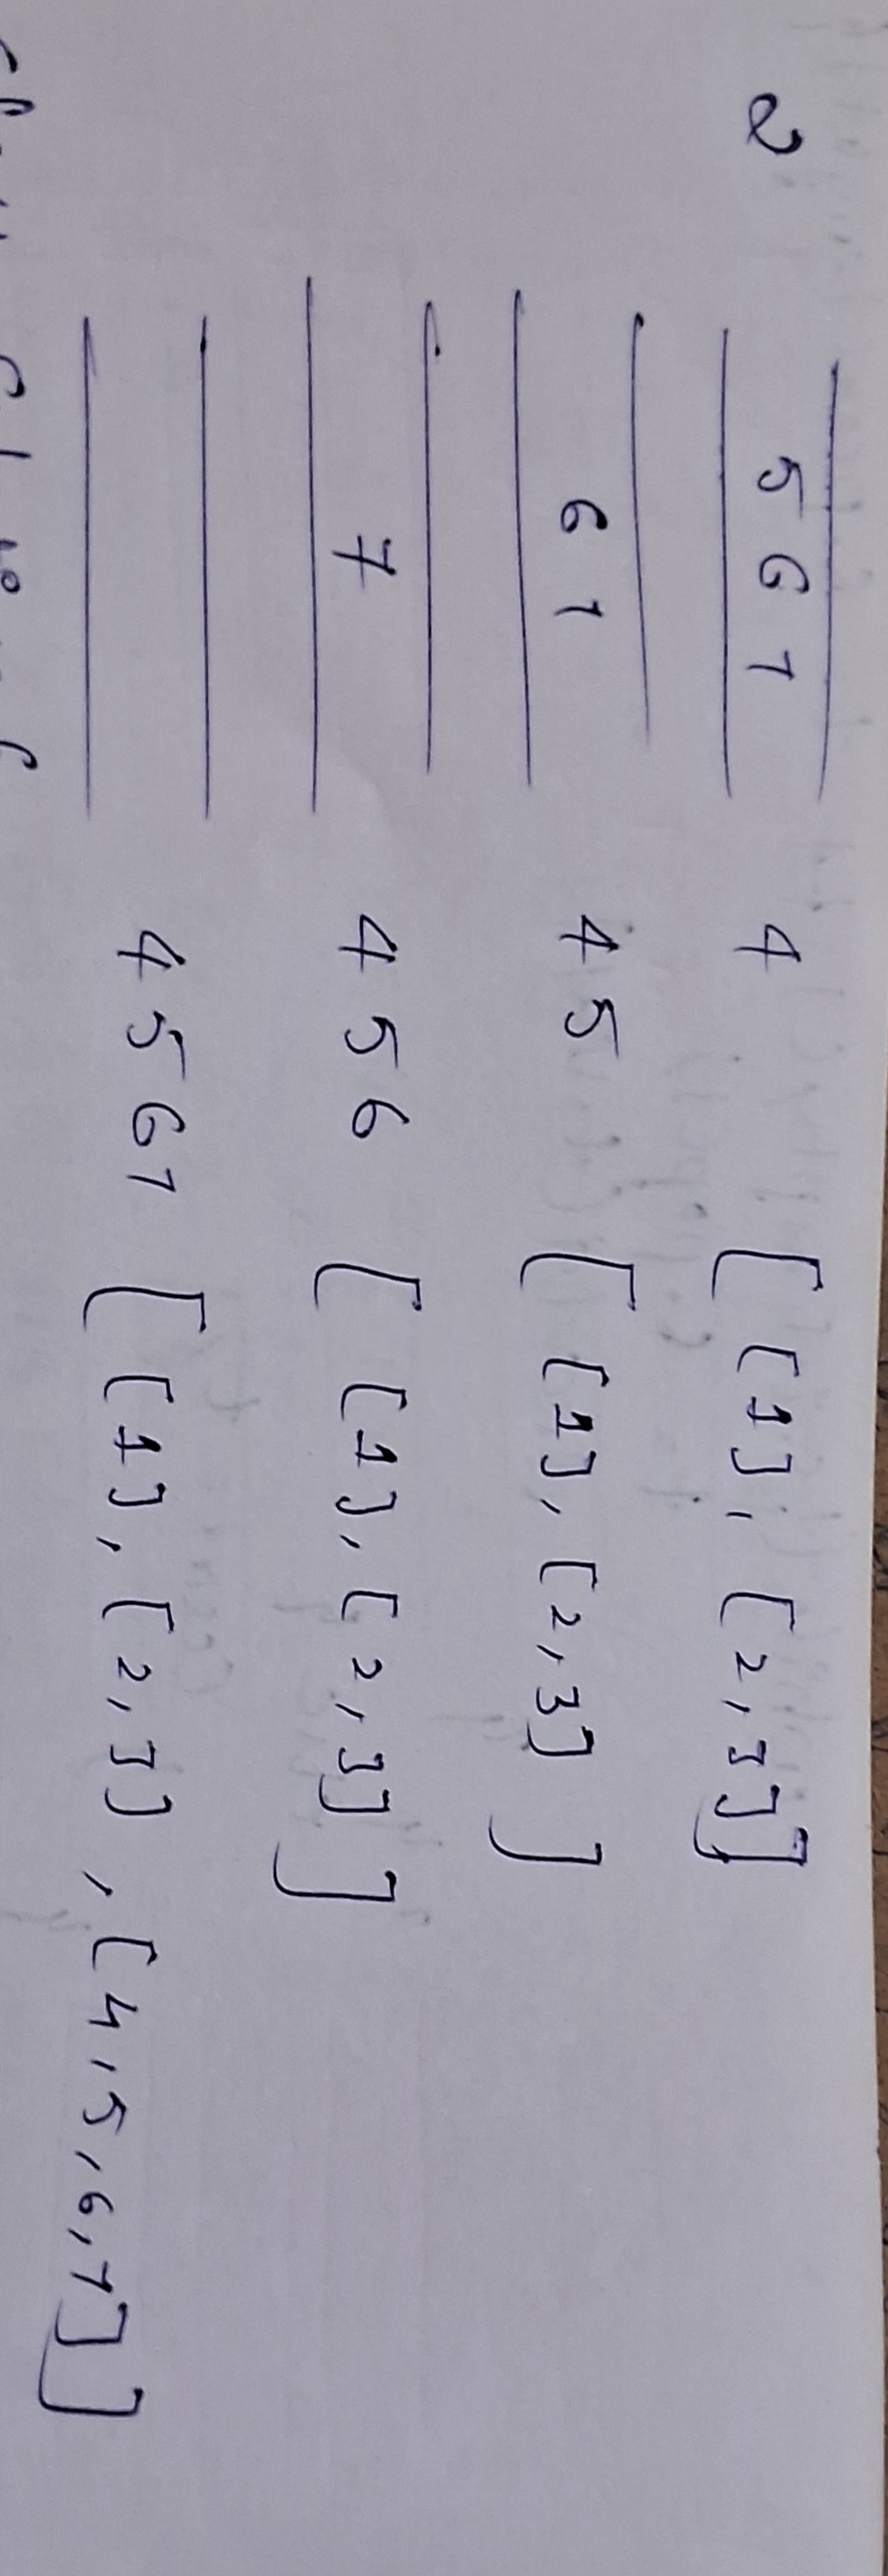 2 5 6 7 4 [[1], [2,3]]
6 7 4 5 [[1], [2,3]]
7 4 5 6 [[1], [2,3]]
4 5 6 7 [[1], [2,3], [4,5,6,7]]